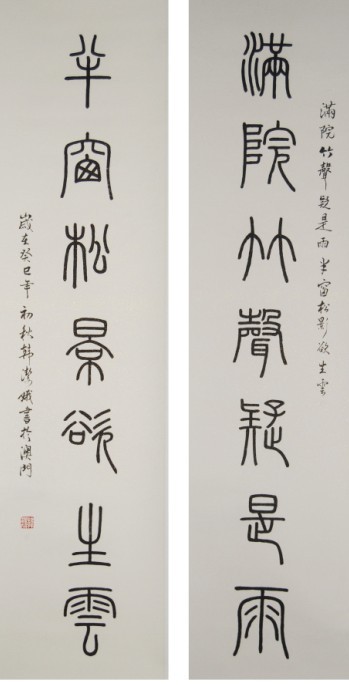 滿院竹聲疑是雨
滿院竹聲疑是雨半窗松影欲生雲
半窗松景欲生雲
歲在癸巳年初秋韓
書於澳門